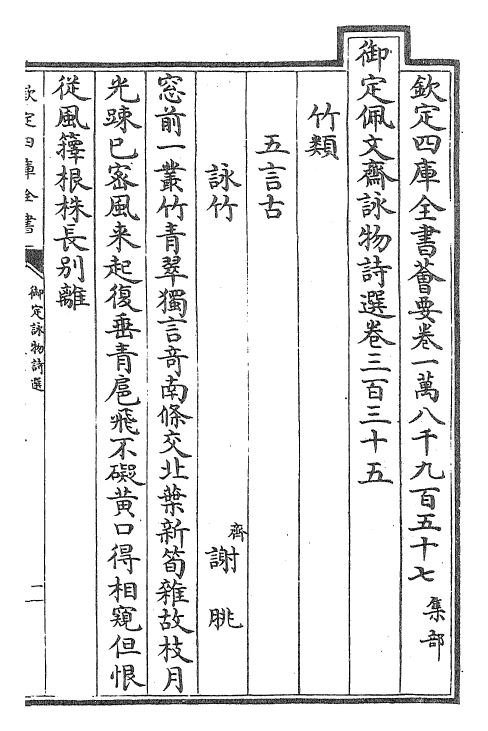 欽定四庫全書薈要卷一萬八千九百五十七 集部
御定佩文齋詠物詩選卷三百三十五
竹類
五言古
詠竹 齊謝朓
窓前一叢竹青翠獨言竒南條交北葉新筍雜故枝月
光踈已宻風来起復垂青扈飛不礙黄口得相窺但恨
従風籜根株長别離
欽定四庫全書
御定詠物詩選
二